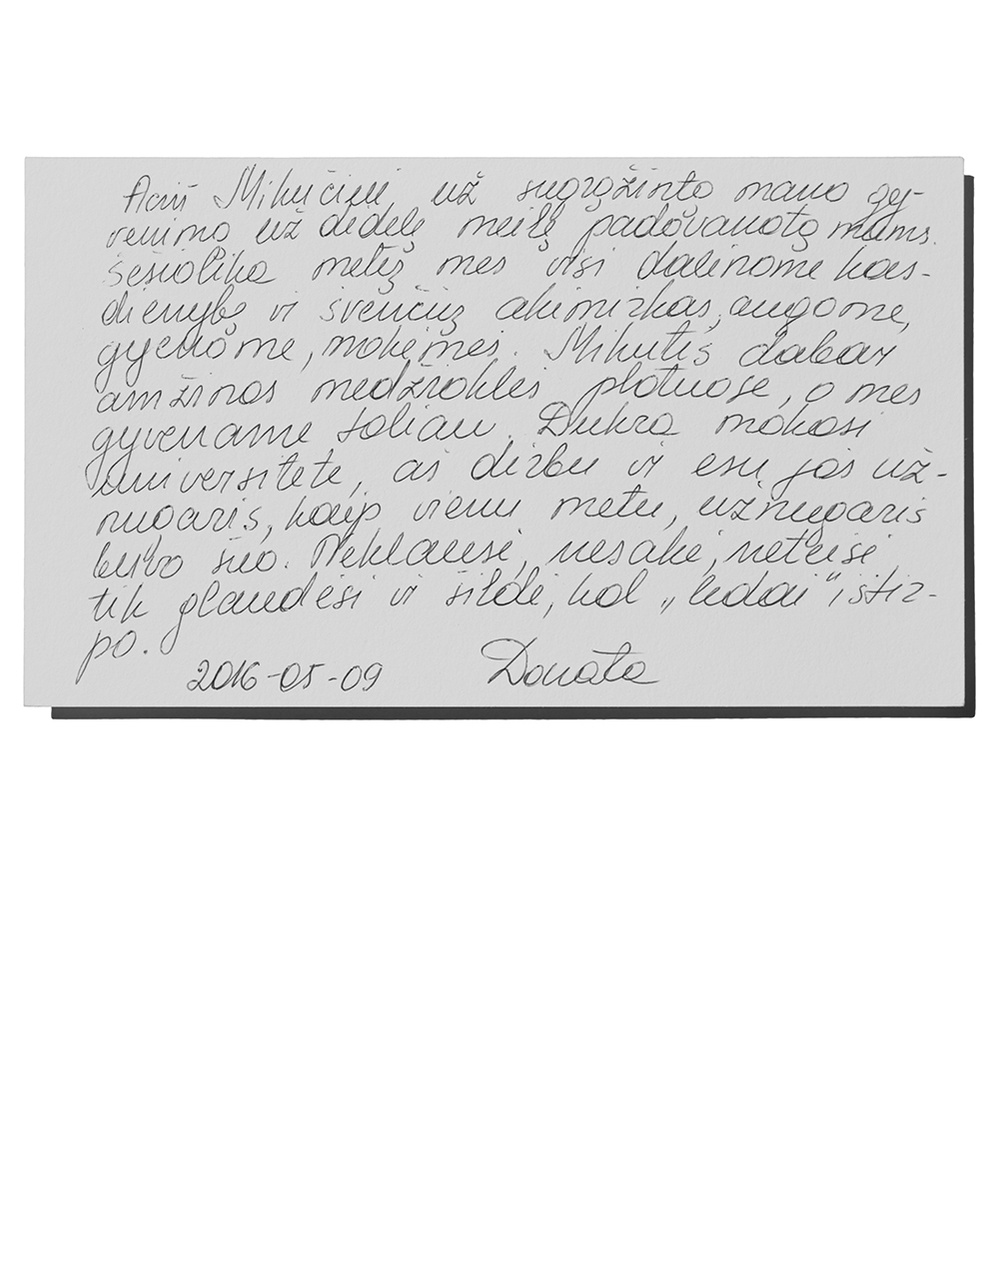 Ačiū Mikučiui, už sugrąžinto mano gy-
venimo už didelę meilę padovanotą mums.
Šešiolika metų mes visi dalinome kas-
dienybę ir švenčių akimirkas, augome,
gyvenome, mokėmės. Mikutis dabar
amžinos medžioklės plotuose, o mes
gyvename toliau. Dukra mokosi
universitete, aš dirbu ir esu jos už-
nugaris, kaip vienu metu, užnugaris
buvo šuo. Neklausė, nesakė, neteisė
tik glaudėsi ir šildė, kol „ledai" ištir-
po.
2016-05-09 Donata